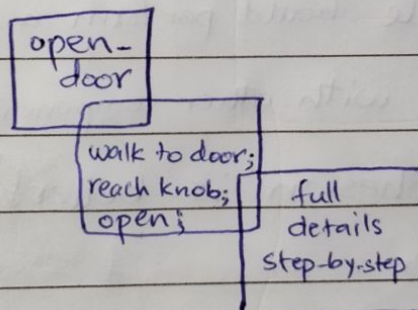 open-
door
walk to door;
reach knob;
open;
full
details
step-by-step